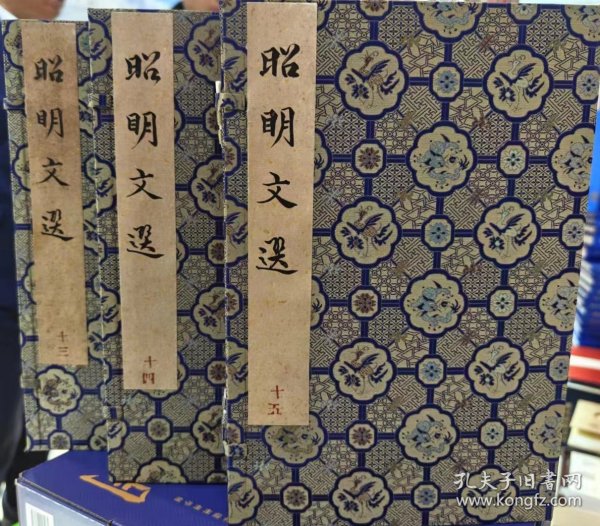 昭明文選
十三
昭明文選
十四
昭明文選
十五
孔夫子旧书网
www.kongfz.com